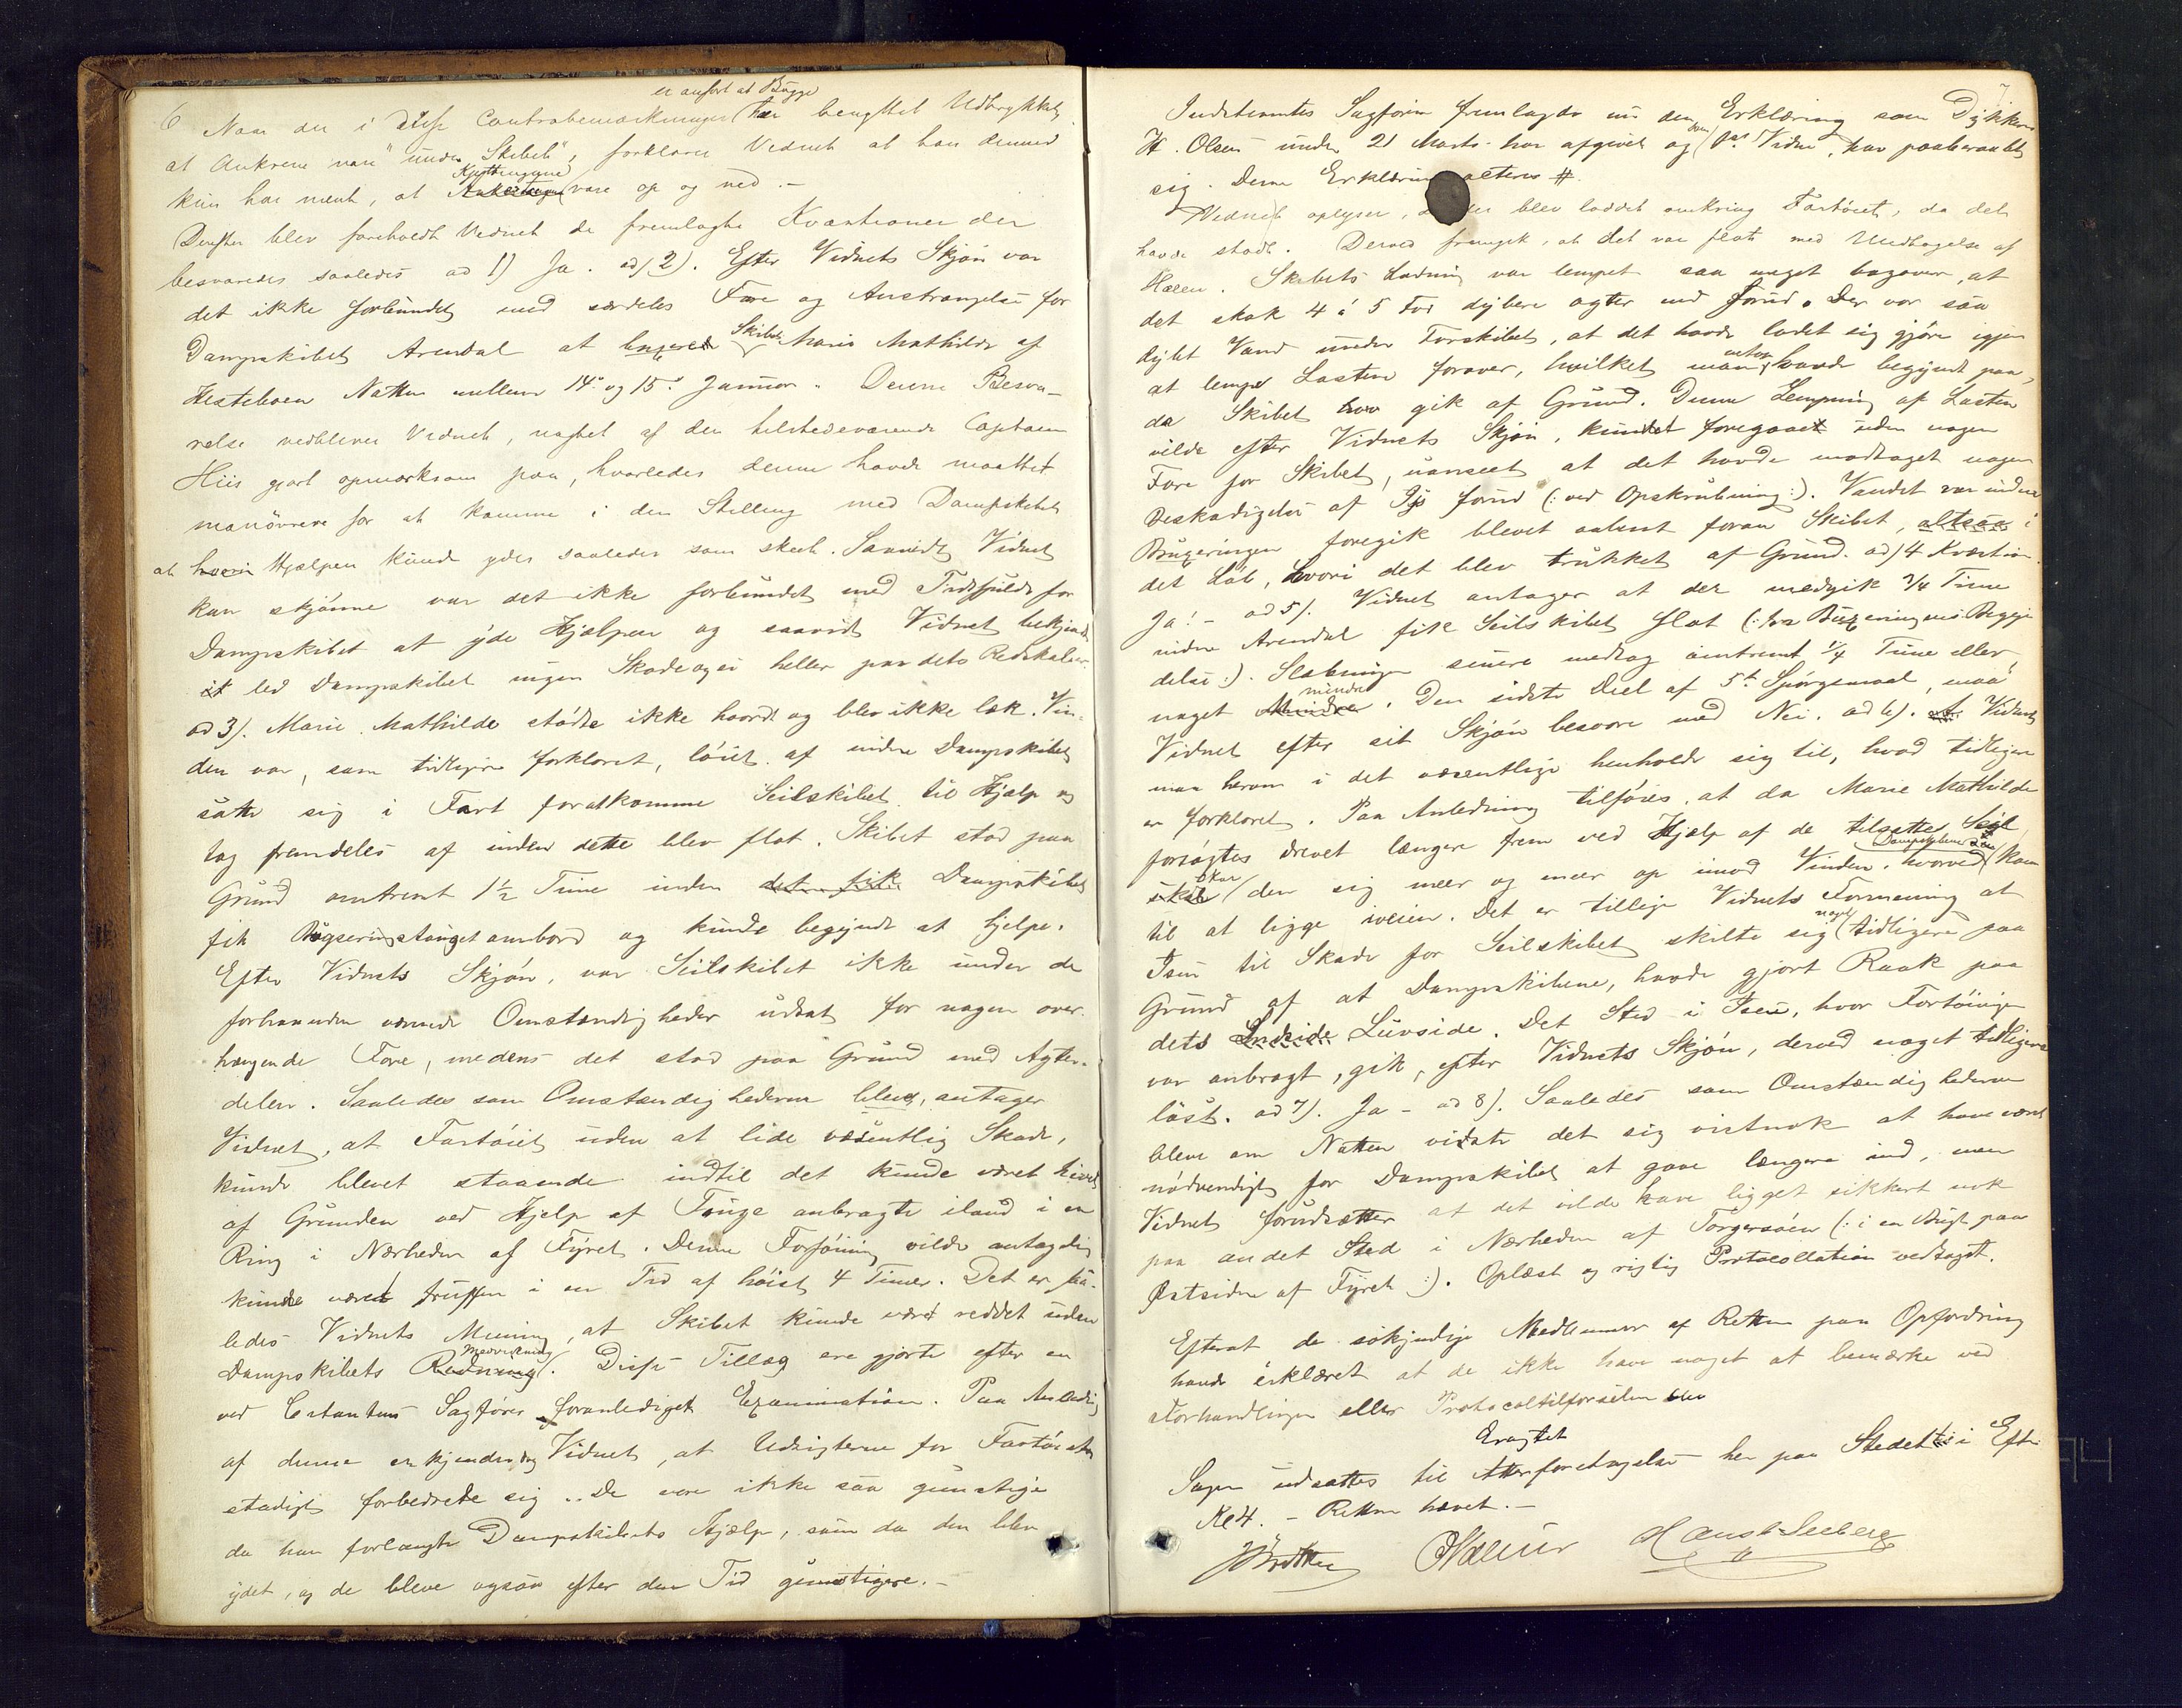 er anført at Bugge
6 Naar der i disse Contrabemærkninger har benyttet Udtrykket,
at Ankrene vare "under Skibet", forklarer Vidnet at han dermed
Kjettingene
kun har ment, at Ankertouge vare op og ned. -
Derefter blev foreholdt Vidnet de fremlagte Kvæstioner der
besvaredes saaledes ad 1) Ja. ad 2). Efter Vidnets Skjøn var
det ikke forbundet med særdeles Fare og Anstrængelse for
Dampskibet Arendal at bugsere Skibet Marie Mathilde af
Hestehoen Natten mellem 14de og 15de Januar. Denne Besva-
relse vedbliver Vidnet, uagtet af den tilstedeværende Captain
Hiis gjort opmærksom paa, hvorledes denne havde maattet
manøvrere for at komme i den Stilling med Dampskibet
at hvori Hjælpen kunde ydes saaledes som skeet. Saavidt Vidnet
kan skjønne var det ikke forbundet med Tidsspilde for
Dampskibet at yde Hjælpen og saavidt Vidnet bekjendt
led Dampskibet ingen Skade og ei heller paa dets Redskaber.
ad 3). Marie Mathilde stødte ikke haardt og blev ikke læk. Vin-
den var, som tidligere forklaret, løiet af inden Dampskibet
satte sig i Fart for at komme Seilskibet til Hjælp og
tog fremdeles af inden dette blev flot. Skibet stod paa
Grund omtrent 1½ Time inden det fik Dampskibet
fik Bogseringstouget ombord og kunde begynde at hjelpe.
Efter Vidnets Skjøn, var Seilskibet ikke under de
forhaanden værende Omstændigheder udsat for nogen over-
hængende Fare, medens det stod paa Grund med Agter-
delen. Saaledes som Omstændighederne bleve, antager
Vidnet, at Fartøiet uden at lide væsentlig Skade,
kunde blevet staaende indtil det kunde været hivet
af Grunden ved Hjelp af Touge anbragte iland i en
Ring i Nærheden af Fyret. Denne Forføining vilde antagelig
kunde været truffen i en Tid af høist 4 Timer. Det er saa-
ledes Vidnets Mening, at Skibet kunde været reddet uden
Medvirkning
Dampskibets Redning. Disse Tillæg ere gjorte efter en
ved Citantens Sagfører foranlediget Examination. Paa Anledning
af denne erkjender dog Vidnet, at Udsigterne for Fartøiet
stadigt forbedrede sig. De vare ikke saa gunstige
da han forlangte Dampskibets Hjælp, som da den blev
ydet, og de bleve ogsaa efter den Tid gunstigere. -
7
Indstevntes Sagfører fremlagde nu den Erklæring som Dykker
H. Olsen under 21 Marts har afgivet og som Vidne, har paaberaabt
sig. Denne Erklæring acteres #.
Vidnet oplyser, at der blev loddet omkring Fartøiet, da det
havde stødt. Derved fremgik, at det var flot med Undtagelse af
Hælen. Skibets Ladning var lempet saa meget bagover, at
det stak 4 á 5 Fod dybere agter end forud. Der var saa
dybt Vand under Forskibet, at det havde ladet sig gjøre igjen
at lempe Lasten forover, hvilket man havde begyndt paa,
da Skibet gik af Grund. Denne Lempning af Lasten
vilde efter Vidnets Skjøn, kundet foregaaet uden nogen
Fare for Skibet, uanseet at det havde modtaget nogen
Beskadigelse af Is forud (: ved Opskrubning :). Vandet var inden
Bugseringen foregik blevet aabent foran Skibet, altsaa i
det Løb, hvori det blev trukket af Grund. ad 4 Kvæstion
Ja! - ad 5). Vidnet antager at der medgik ¾ Time
inden Arendal fik Seilskibet flot (: fra Bugseringens Begyn-
delse :). Slæbningen senere medtog omtrent ¼ Time eller
mindre
noget Mindre. Den sidste Deel af 5te Spørgsmaal, maa
Vidnet efter sit Skjøn besvare med Nei. ad 6). Vidnet
maa herom i det væsentlige henholde sig til, hvad tidligere
er forklaret. Paa Anledning tilføies, at da Marie Mathilde
forsøgtes drevet længere frem ved Hjælp af de tilsatte Seil
skar den sig meer og meer op imod Vinden, hvorved Dampskibene kom
til at ligge iveien. Det er tillige Vidnets Formening at
Isen til Skade for Seilskibet skilte sig noget tidligere paa
Grund af at Dampskibene, havde gjort Raak paa
dets Luvside. Det Sted i Isen, hvor Fortøiningen
var anbragt, gik, efter Vidnets Skjøn, derved noget tidligere
løst. ad 7). Ja - ad 8). Saaledes som Omstændighederne
bleve om Natten viste det sig vistnok at have været
nødvendigt for Dampskibet at gaae længere ind, men
Vidnet forudsætter at det vilde have ligget sikkert nok
paa andet Sted i Nærheden af Torgersøen (: i en Bugt paa
Østsiden af Fyret :). Oplæst og rigtig Protocollation vedtaget.
Efterat de søkyndige Medlemmer af Retten paa Opfordring
havde erklæret at de ikke have noget at bemærke ved
Forhandlingen eller Protocoltilførselen blev
Eragtet
Sagen udsættes til Atterforetagelse her paa Stedet i Efterm
Kl 4. - Retten hævet. -